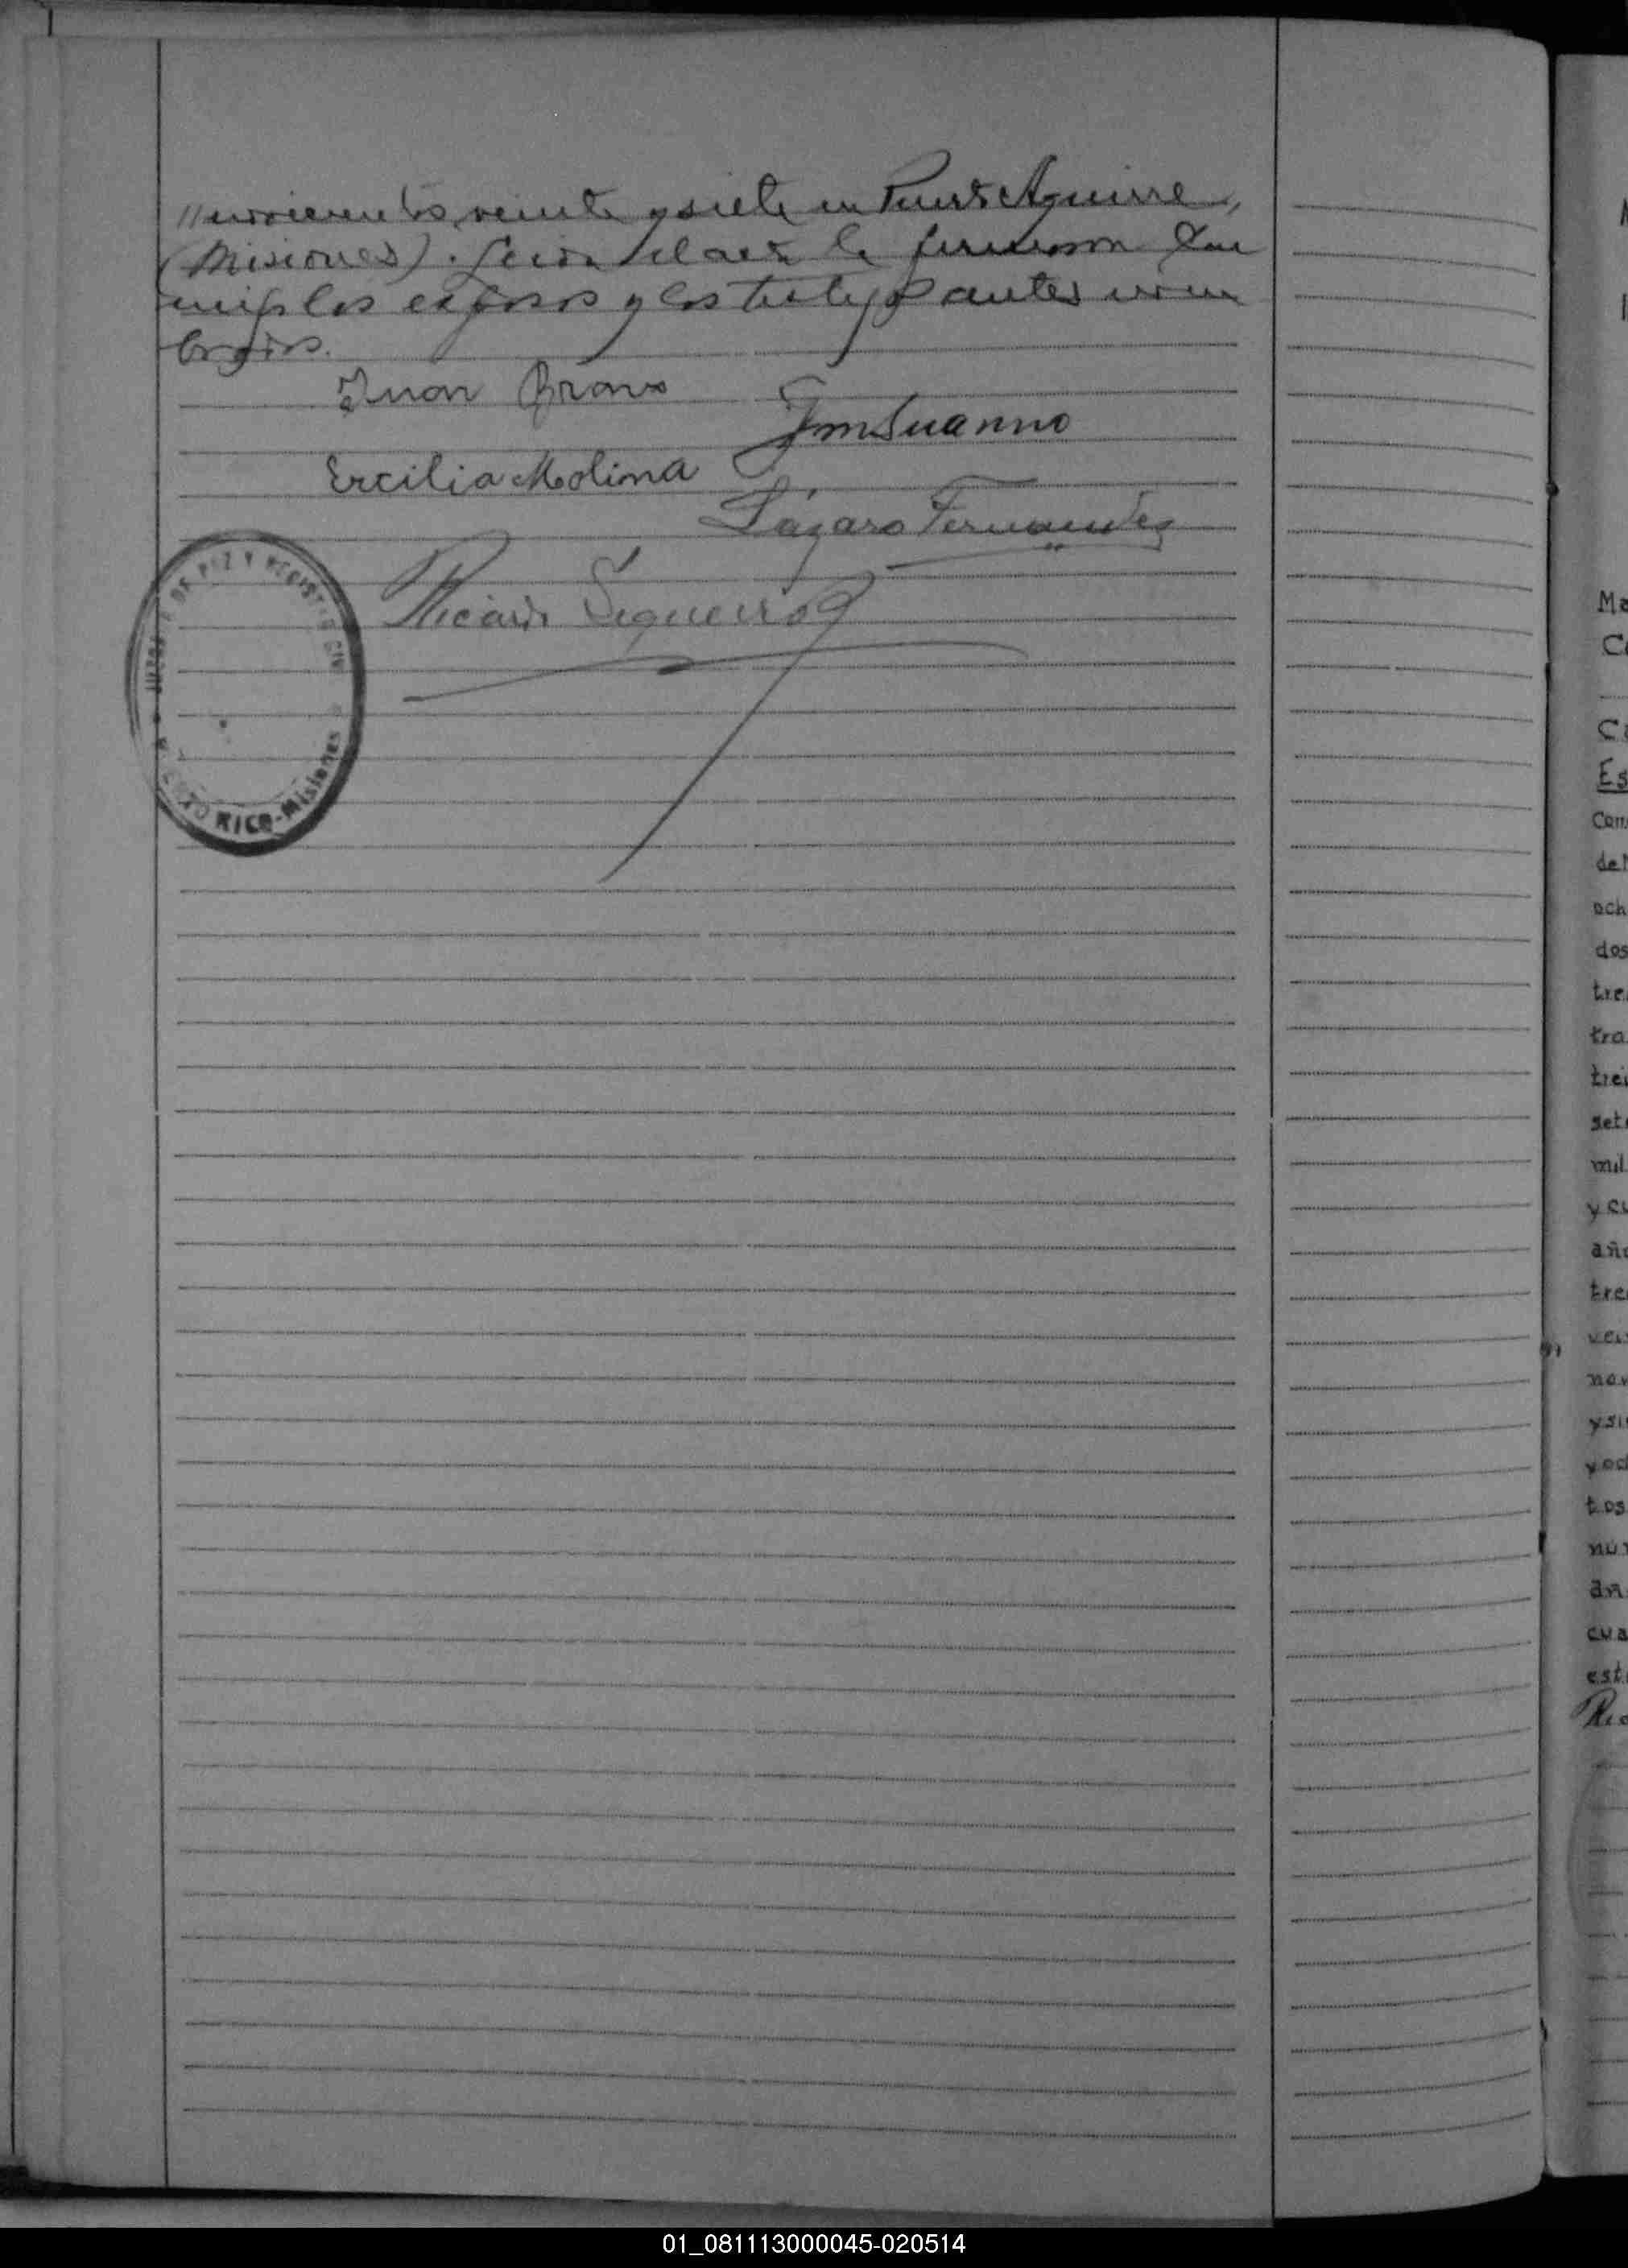 //novecientos veinte y siete en Puerto Aguirre,
(Misiones). Leida el acta la firmaron con
migo los esposos y los testigos antes nom
brados.
Juan Bravo
Ercilia Molina
Lázaro Fernandez
Ricardo Sequeiros
JUZGADO DE PAZ Y REGISTRO CIVIL
PUERTO RICO-Misiones
Ma
Co
Es
Com
del
och
dos
tre
tra
trei
sete
mil
y cu
año
tre
vei
nov
y si
y och
tos
nú
añ
cua
est
Ric
01_081113000045-020514